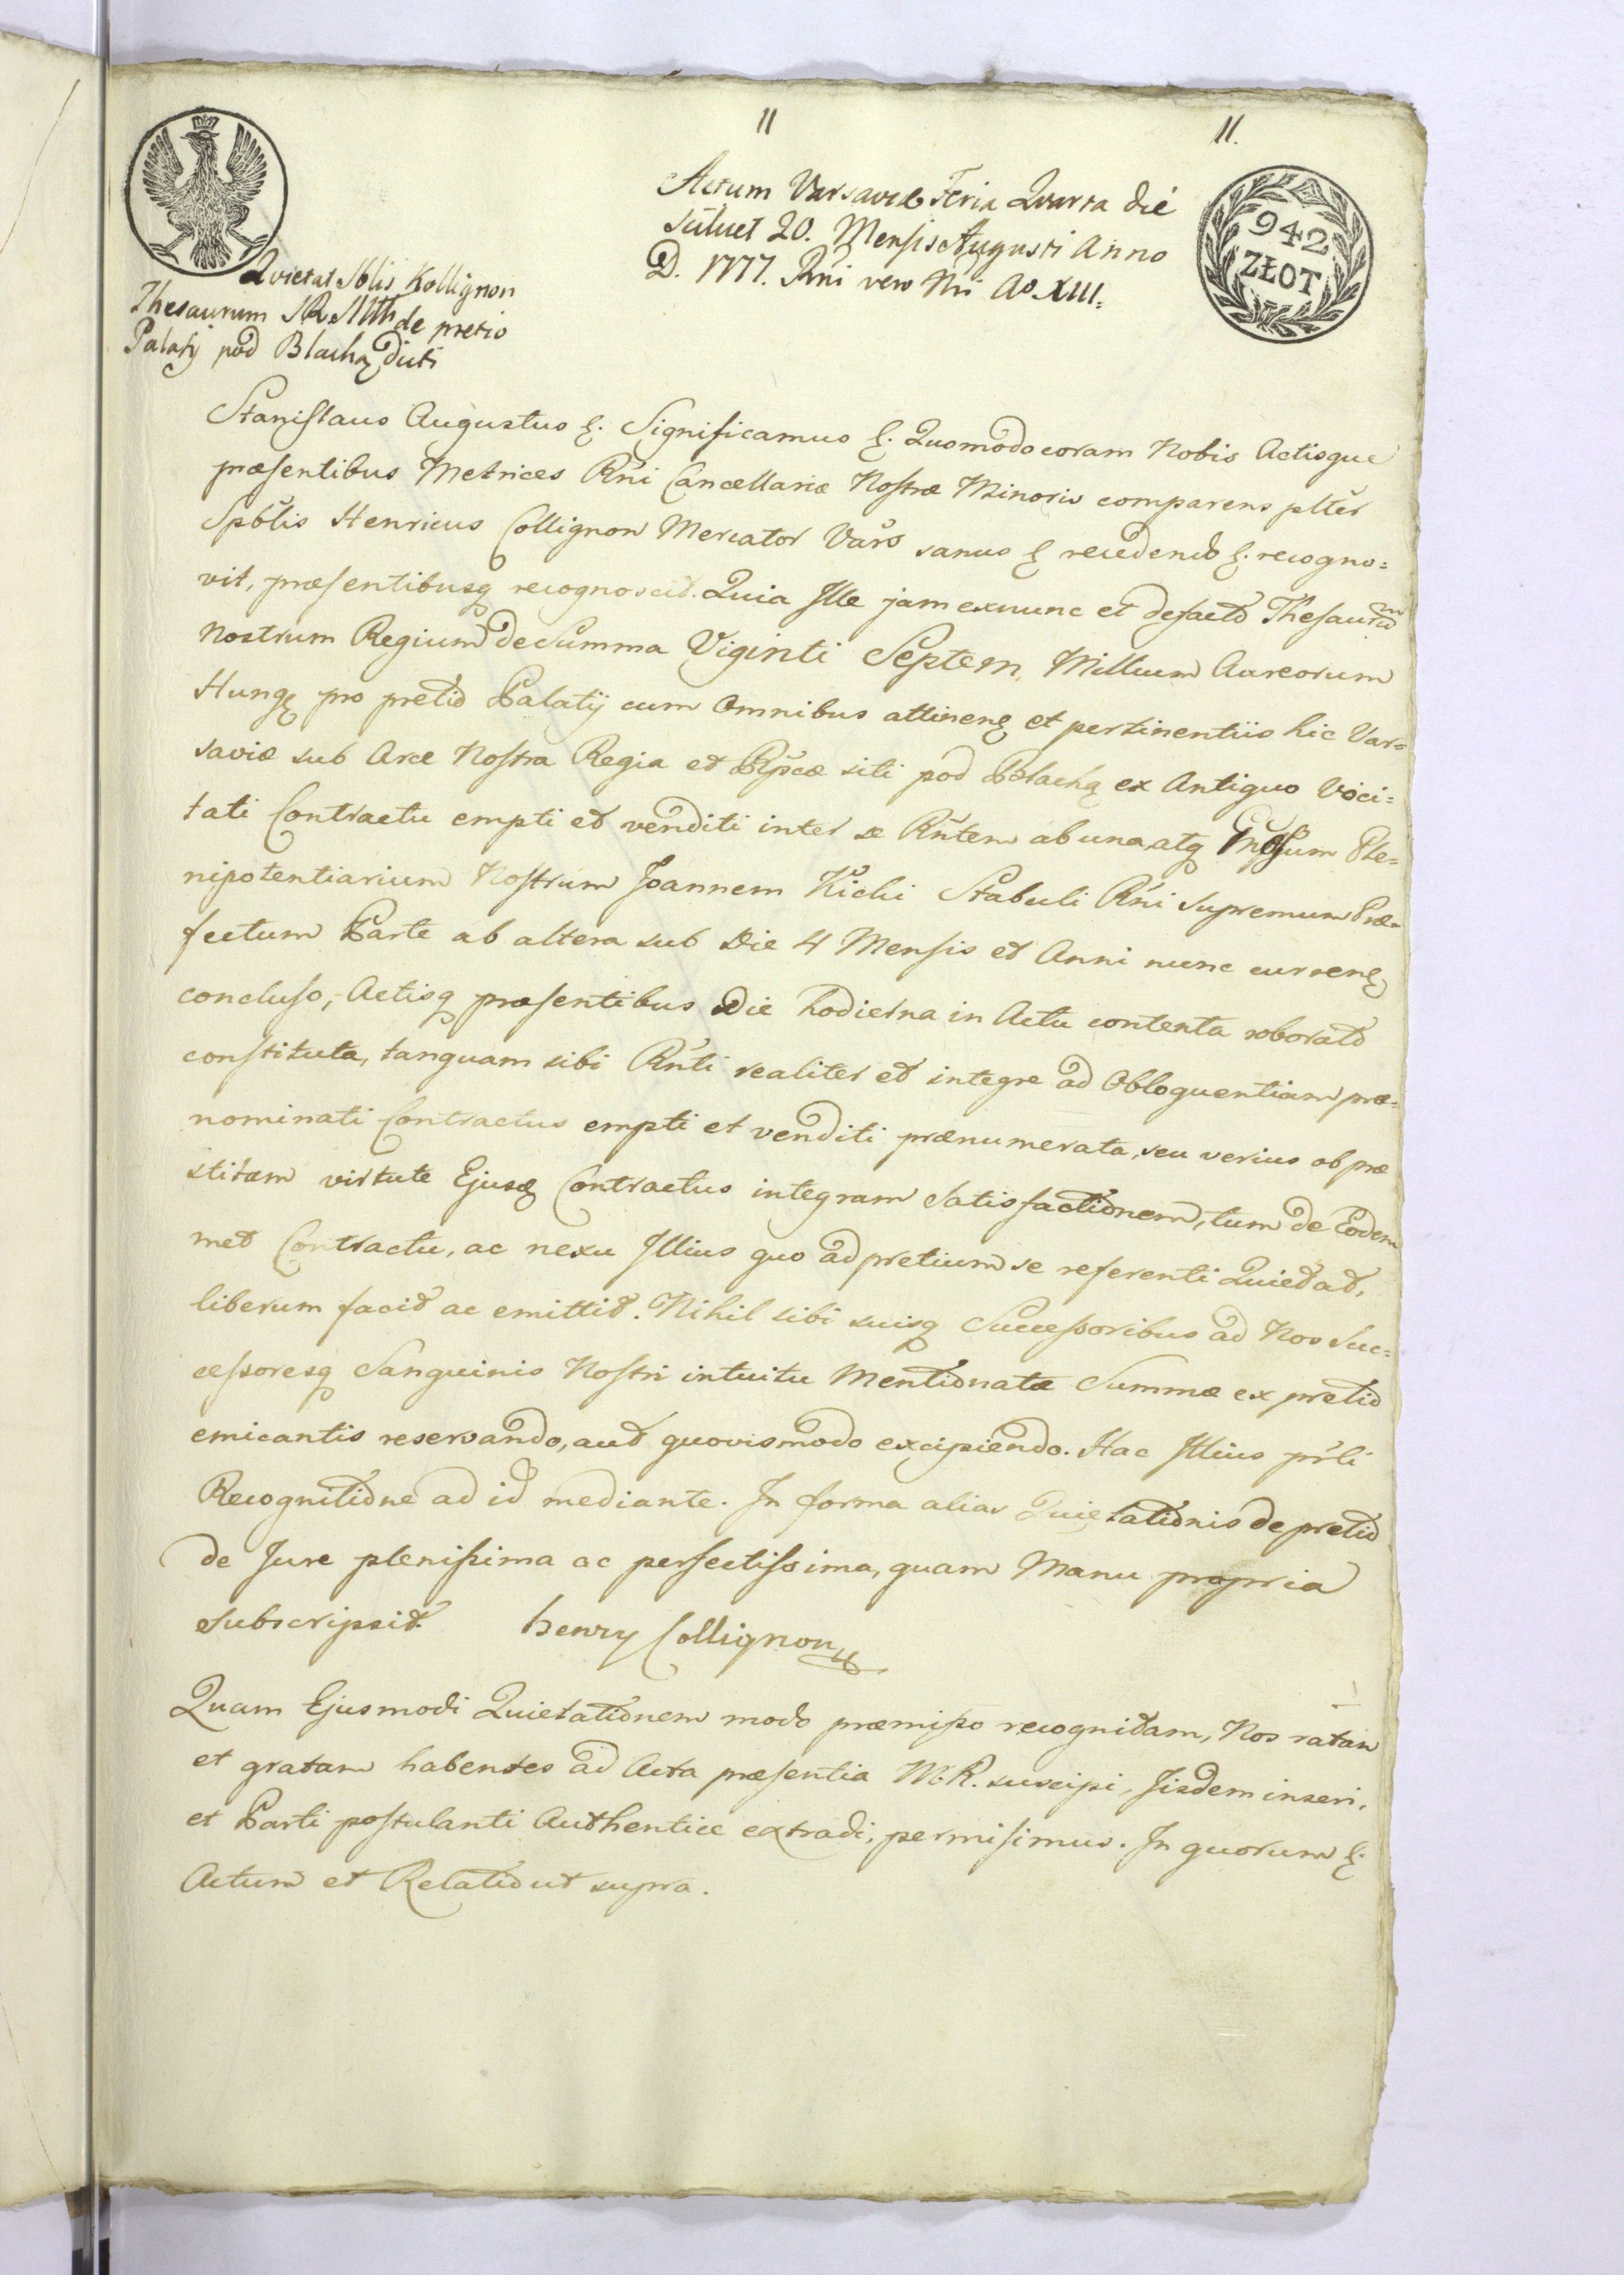 11
11.
Actum Varsaviæ Feria Quarta die
scilicet 20. Mensis Augusti Anno
D. 1777. Rni vero Nri Ao XIII.
942
ZŁOT
Quietat Sblis Kollignon
Thesaurum de pretio
Palatij pod Blachą dicti
Stanislaus Augustus &. Significamus &. Quomodo coram Nobis Actisque
præsentibus Metrices Rni Cancellariæ Nostræ Minoris comparens plter
Spblis Henricus Collignon Mercator Vars sanus & recedendo &. recogno=
vit, præsentibusq recognoscit. Quia Ille jam exnunc et defacto Thesaurum
Nostrum Regium de Summa Viginti Septem Millium Aureorum
Hung pro pretio Palatij cum Omnibus attinen et pertinentiis hic Var=
saviæ sub Arce Nostra Regia et Rpcæ siti pod Blachą ex Antiquo Voci=
tati Contractu empti et venditi inter se Rntem ab una, atq Gnosum Ple=
nipotentiarium Nostrum Joannem Kicki Stabuli Rni Supremum Præ=
fectum Parte ab altera sub Die 4 Mensis et Anni nunc curren
concluso, Actisq præsentibus Die hodierna in Actu contenta roborato
constituta, tanquam sibi Rnti realiter et integre ad Obloquentiam præ=
nominati Contractus empti et venditi prænumerata, seu verius ob præ
stitam virtute Ejusd Contractus integram Satisfactionem, tum de Eodem
met Contractu, ac nexu Illius quo ad pretium se referenti Quietat,
liberum facit ac emittit. Nihil sibi suisq Successoribus ad Nos Suc=
cessoresq Sanguinis Nostri intuitu Mentionatæ Summæ ex pretio
emicantis reservando, aut quovismodo excipiendo. Hac Illius prli
Recognitione ad id mediante. In forma alias Quietationis de pretio
de Jure plenissima ac perfectissima, quam Manu propria
subscripsit. henry Collignon
Quam Ejusmodi Quietationem modo præmisso recognitam, Nos ratam
et gratam habentes ad Acta præsentia M. R. suscipi, Iisdem inseri,
et Parti postulanti Authentice extradi, permisimus. In quorum &.
Actum et Relatio ut supra.